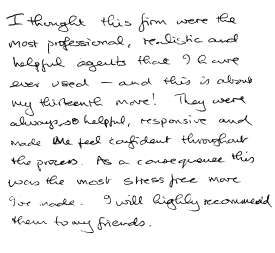 I thought this firm were the
most professional, realistic and
helpful agents that I have
ever used – and this is about
my thirteenth move! They were
always so helpful, responsive and
made me feel confident throughout
the process. As a consequence this
was the most stress free move
I've made. I will highly recommend
them to my friends.